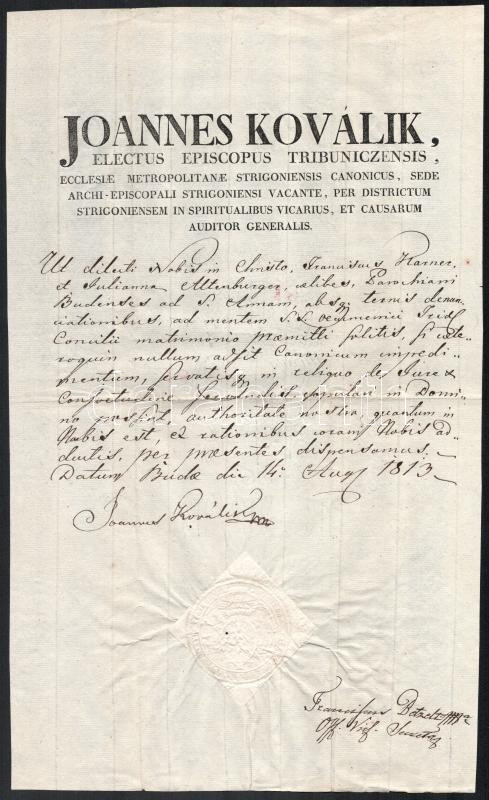 JOANNES KOVÁLIK,
ELECTUS EPISCOPUS TRIBUNICZENSIS,
ECCLESIÆ METROPOLITANÆ STRIGONIENSIS CANONICUS, SEDE
ARCHI-EPISCOPALI STRIGONIENSI VACANTE, PER DISTRICTUM
STRIGONIENSEM IN SPIRITUALIBUS VICARIUS, ET CAUSARUM
AUDITOR GENERALIS.
Ut dilecti Nobis in Christo, Franciscus Harner,
et Julianna Altenburger, cælibes, Parochiani
Budenses ad S. Annam, absq ternis denun„
ciationibus, ad mentem S.S. Oecumenici Trid.
Concilii matrimonio præmitti solitis, si cete„
roquin nullum adsit Canonicum impedi„
mentum, servatisq in reliquo de Jure &
Consvetudine servandis, copulari in Domi„
no possint, authoritate nostra, quantum in
Nobis est, et rationibus coram Nobis ad„
ductis, per præsentes dispensamus.
Datum Budæ die 14. Aug 1813
Joannes Koválik
Franciscus
Off. Secret.